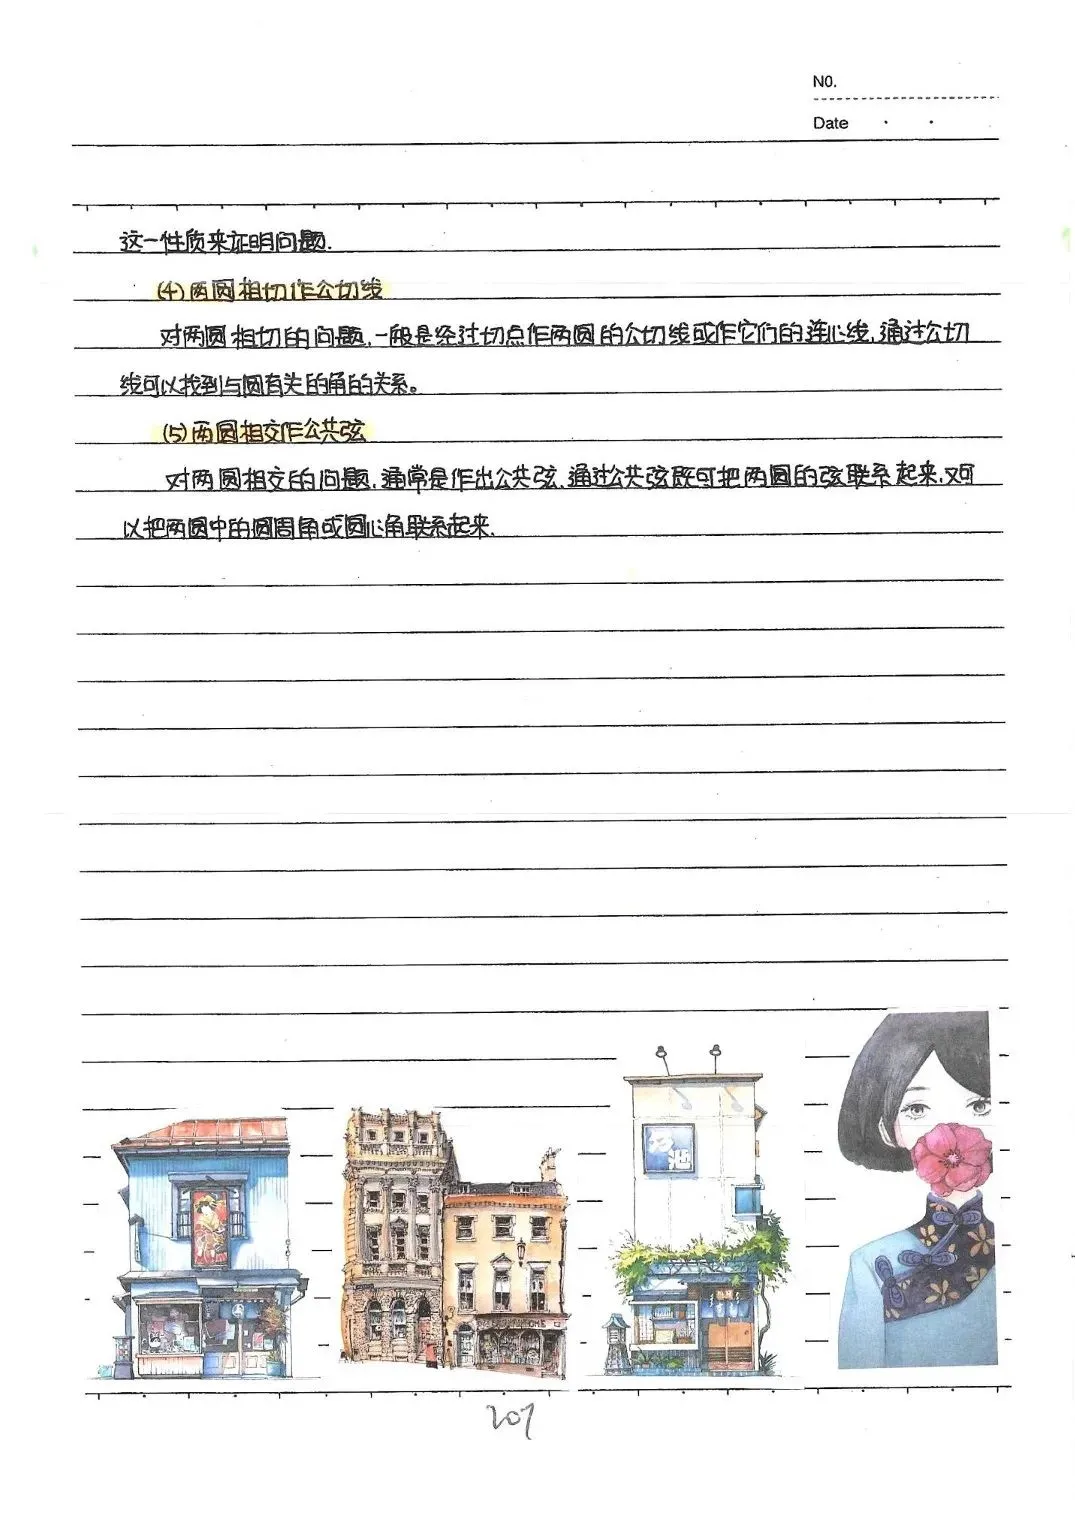 NO.
Date
这一性质来证明问题.
(4)两圆相切作公切线
对两圆相切的问题,一般是经过切点作两圆的公切线或作它们的连心线,通过公切
线可以找到与圆有关的角的关系。
(5)两圆相交作公共弦
对两圆相交的问题,通常是作出公共弦,通过公共弦既可把两圆的弦联系起来,又可
以把两圆中的圆周角或圆心角联系起来.
207